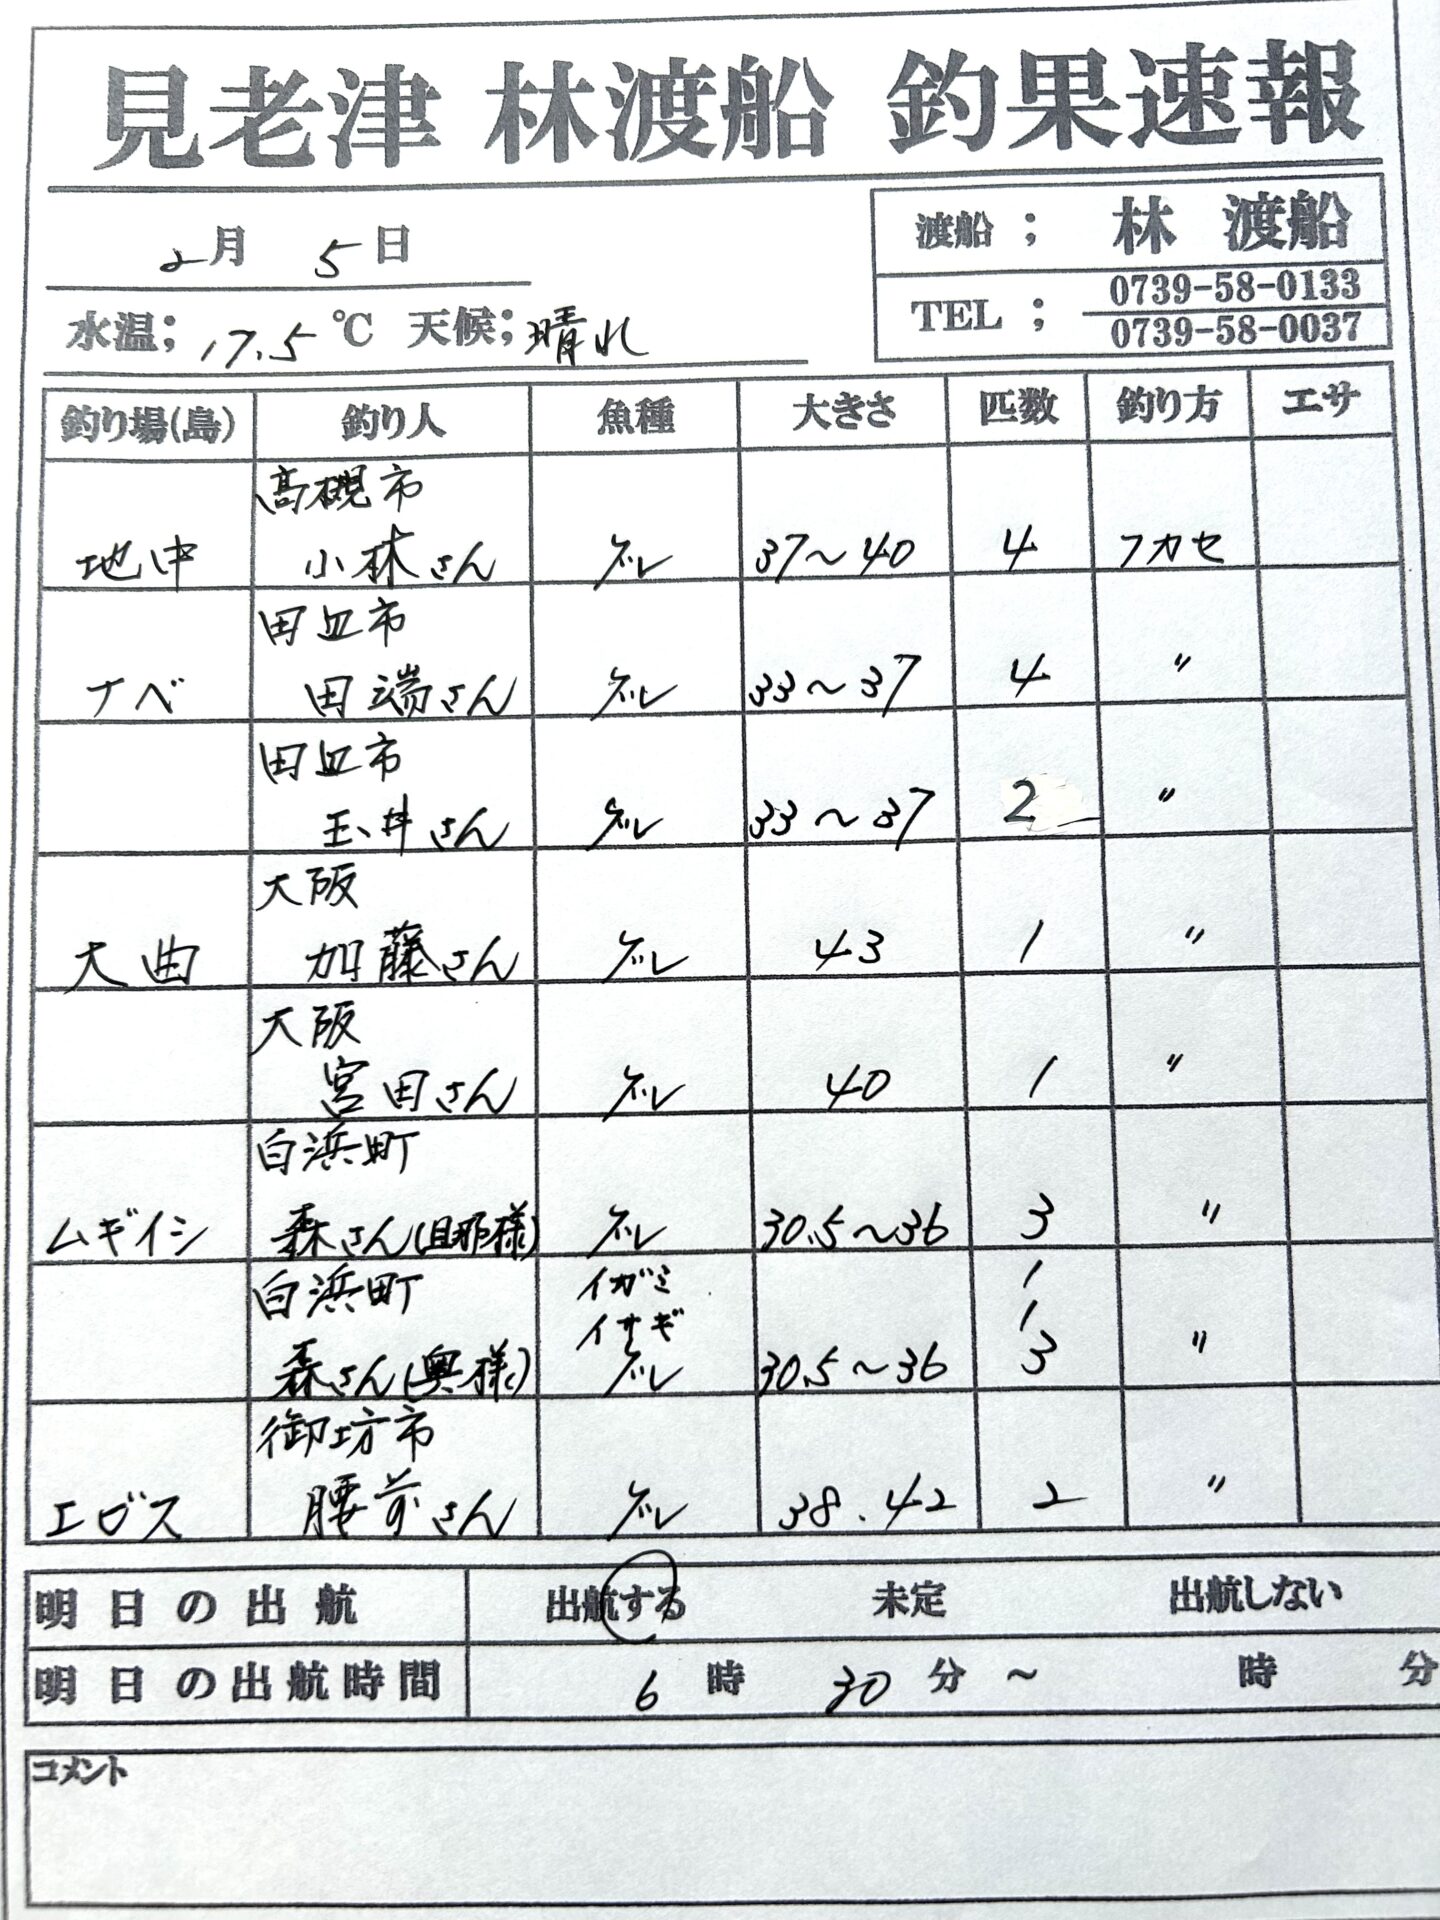 見老津 林渡船 釣果速報
2月 5日
渡船 ; 林 渡船
TEL ; 0739-58-0133
0739-58-0037
水温; 17.5 ℃ 天候; 晴れ
釣り場(島) 釣り人 魚種 大きさ 匹数 釣り方 エサ
高槻市
地中 小林さん グレ 37〜40 4 フカセ
田辺市
ナベ 田端さん グレ 33〜37 4 〃
田辺市
玉井さん グレ 33〜37 2 〃
大阪
大曲 加藤さん グレ 43 1 〃
大阪
宮田さん グレ 40 1 〃
白浜町
ムギイシ 森さん(旦那様) グレ 30.5〜36 3 〃
白浜町 イガミ 1
イサギ 1
森さん(奥様) グレ 30.5〜36 3 〃
御坊市
エボス 腰前さん グレ 38.42 2 〃
明日の出航 出航する 未定 出航しない
明日の出航時間 6 時 30 分 〜 時 分
コメント